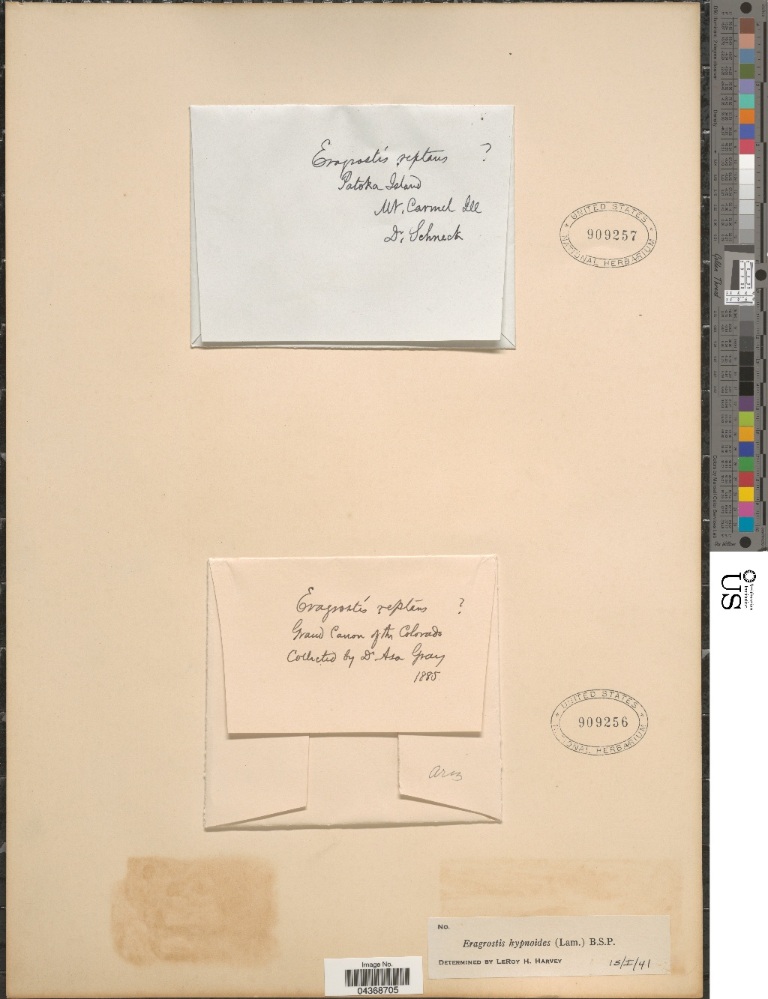 Eragrostis reptans ?
Patoka Island
Mt. Carmel Ill
Dr. Schneck
UNITED STATES
909257
NATIONAL HERBARIUM
Eragrostis reptans ?
Grand Canon of the Colorado
Collected by Dr Asa Gray
1885
Ariz
UNITED STATES
909256
NATIONAL HERBARIUM
No.
Eragrostis hypnoides (Lam.) B.S.P.
DETERMINED BY LEROY H. HARVEY 15/I/41
Image No.
04368705
US